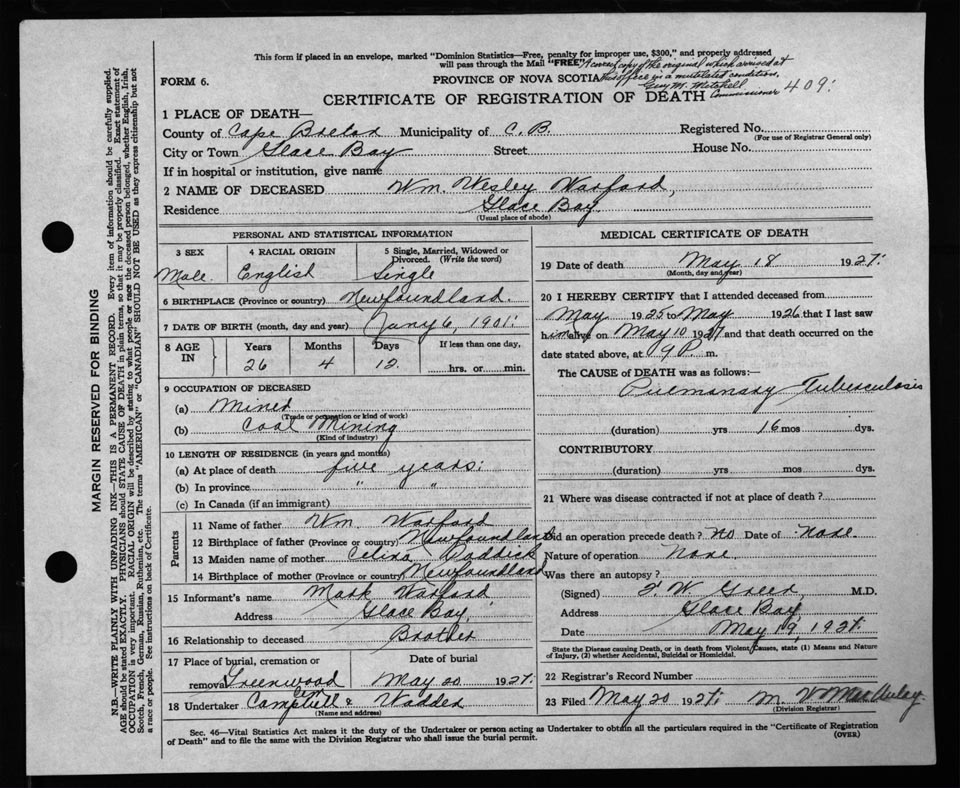 This form if placed in an envelope, marked "Dominion Statistics—Free, penalty for improper use, $300," and properly addressed
will pass through the Mail "FREE."
A correct copy of the original which arrived at
this office in a mutilated condition.
Guy M. Motchell
Commissioner
409.
FORM 6.
PROVINCE OF NOVA SCOTIA
CERTIFICATE OF REGISTRATION OF DEATH
1 PLACE OF DEATH—
County of Cape Breton Municipality of C. B. Registered No.
(For use of Registrar General only)
City or Town Glace Bay Street House No.
If in hospital or institution, give name
2 NAME OF DECEASED Wm. Wesley Warford,
Residence Glace Bay.
(Usual place of abode)
PERSONAL AND STATISTICAL INFORMATION
3 SEX 4 RACIAL ORIGIN 5 Single, Married, Widowed or
Divorced. (Write the word)
Male. English Single
6 BIRTHPLACE (Province or country) Newfoundland.
7 DATE OF BIRTH (month, day and year) Jany 6, 1901.
8 AGE IN Years Months Days If less than one day,
26 4 12. hrs. or min.
9 OCCUPATION OF DECEASED
(a) Miner
(Trade or occupation or kind of work)
(b) Coal Mining
(Kind of industry)
10 LENGTH OF RESIDENCE (in years and months)
(a) At place of death five years.
(b) In province " "
(c) In Canada (if an immigrant)
Parents
11 Name of father Wm Warford
12 Birthplace of father (Province or country) Newfoundland
13 Maiden name of mother Celina Doddick
14 Birthplace of mother (Province or country) Newfoundland
15 Informant's name Mark Warford
Address Glace Bay,
16 Relationship to deceased Brother
17 Place of burial, cremation or Date of burial
removal Greenwood Cem May 20 1927.
18 Undertaker Campbell & Wadden
(Name and address)
MEDICAL CERTIFICATE OF DEATH
19 Date of death May 18 1927.
(Month, day and year)
20 I HEREBY CERTIFY that I attended deceased from
May 1925 to May 1926 that I last saw
him alive on May 10 1927 and that death occurred on the
date stated above, at 9 P. m.
The CAUSE of DEATH was as follows:—
Pulmonary Tuberculosis
(duration) yrs 16 mos dys.
CONTRIBUTORY
(duration) yrs mos dys.
21 Where was disease contracted if not at place of death?
Did an operation precede death? No Date of None.
Nature of operation None.
Was there an autopsy?
(Signed) W. Green, M.D.
Address Glace Bay
Date May 19, 1927.
State the Disease causing Death, or in death from Violent Causes, state (1) Means and Nature
of Injury, (2) whether Accidental, Suicidal or Homicidal.
22 Registrar's Record Number
23 Filed May 20 1927. M. W MacAulay.
(Division Registrar)
Sec. 46—Vital Statistics Act makes it the duty of the Undertaker or person acting as Undertaker to obtain all the particulars required in the "Certificate of Registration
of Death" and to file the same with the Division Registrar who shall issue the burial permit.
(OVER)
MARGIN RESERVED FOR BINDING
N.B.—WRITE PLAINLY WITH UNFADING INK—THIS IS A PERMANENT RECORD. Every item of information should be carefully supplied.
AGE should be stated EXACTLY. PHYSICIANS should STATE CAUSE OF DEATH in plain terms, so that it may be properly classified. Exact statement of
OCCUPATION is very important. RACIAL ORIGIN will be described by stating to what people or race the deceased person belonged, whether English, Irish,
Scotch, French, German, Russian, Ruthenian, etc. The terms "AMERICAN" or "CANADIAN" SHOULD NOT BE USED as they express citizenship but not
a race or people. See instructions on back of Certificate.